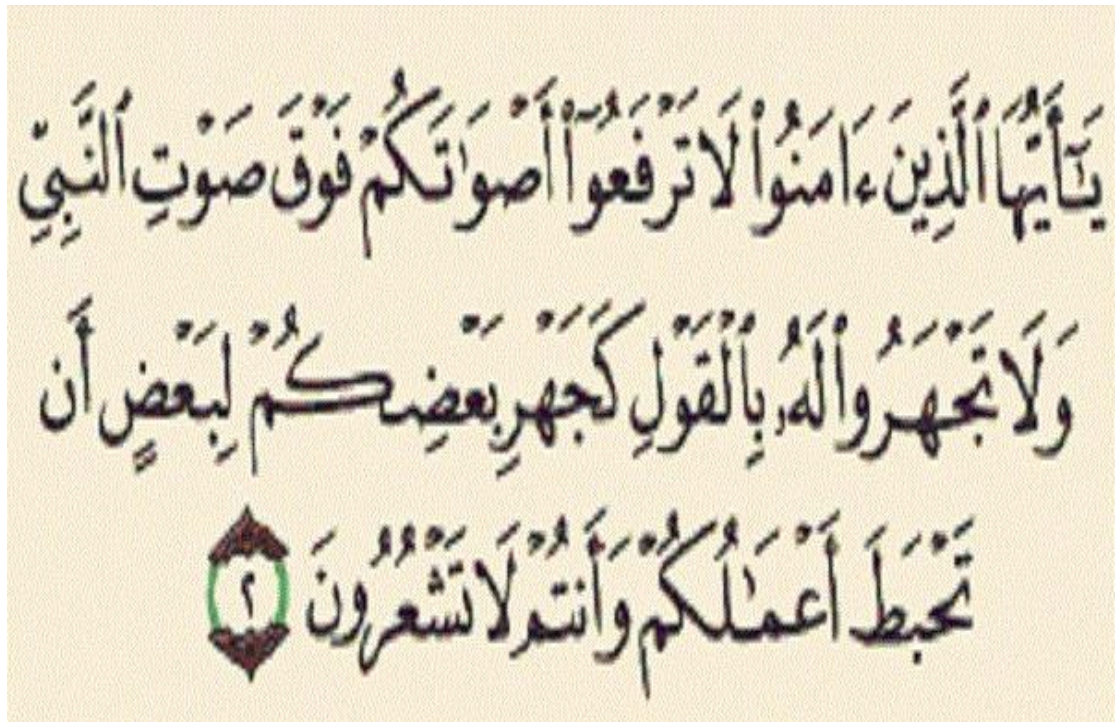 يَـٰٓأَيُّهَا ٱلَّذِينَ ءَامَنُوا۟ لَا تَرْفَعُوٓا۟ أَصْوَٰتَكُمْ فَوْقَ صَوْتِ ٱلنَّبِيِّ
وَلَا تَجْهَرُوا۟ لَهُۥ بِٱلْقَوْلِ كَجَهْرِ بَعْضِكُمْ لِبَعْضٍ أَن
تَحْبَطَ أَعْمَـٰلُكُمْ وَأَنتُمْ لَا تَشْعُرُونَ ٢